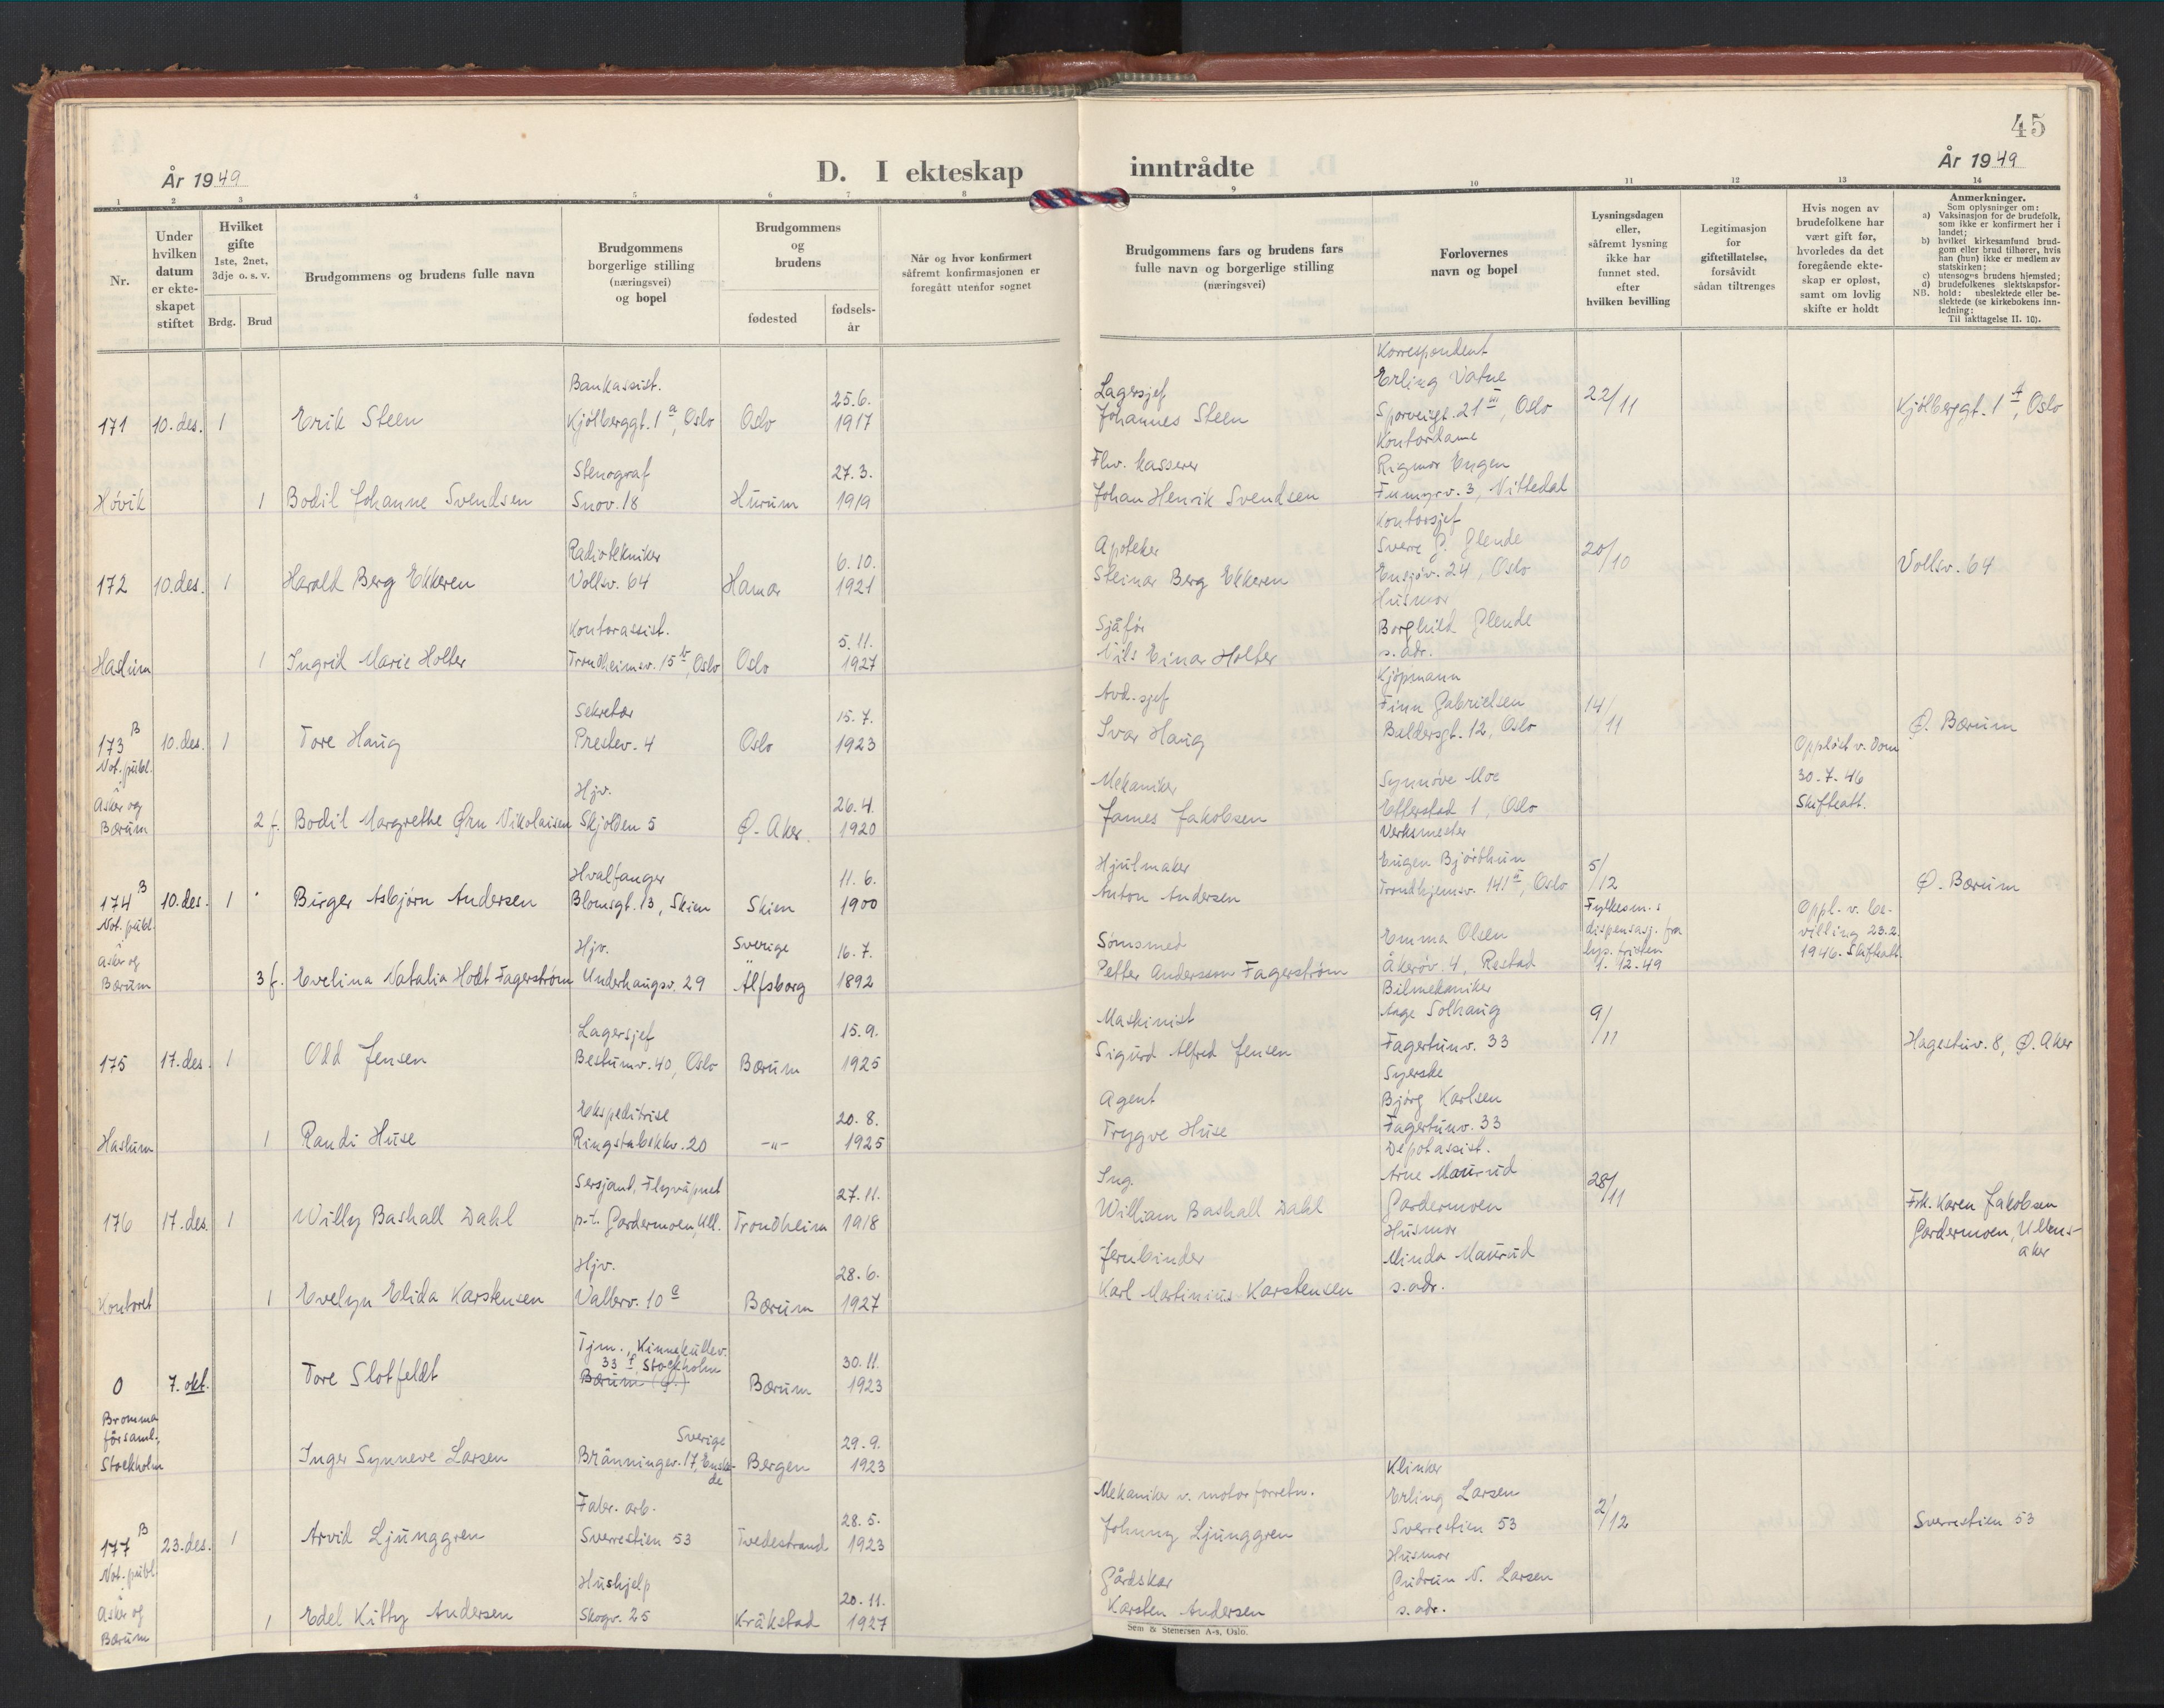 45
År 1949
D. I ekteskap inntrådte
År 1949
1 2 3 4 5 6 7 8 9 10 11 12 13 14
Nr.
Under hvilken datum er ekteskapet stiftet
Hvilket gifte 1ste, 2net, 3dje o. s. v.
Brdg. Brud
Brudgommens og brudens fulle navn
Brudgommens borgerlige stilling (næringsvei) og bopel
Brudgommens og brudens
fødested
fødsels-år
Når og hvor konfirmert såfremt konfirmasjonen er foregått utenfor sognet
Brudgommens fars og brudens fars fulle navn og borgerlige stilling (næringsvei)
Forlovernes navn og bopel
Lysningsdagen eller, såfremt lysning ikke har funnet sted, efter hvilken bevilling
Legitimasjon for giftetillatelse, forsåvidt sådan tiltrenges
Hvis nogen av brudefolkene har vært gift før, hvorledes da det foregående ekteskap er opløst, samt om lovlig skifte er holdt
Anmerkninger.
Som oplysninger om:
a) Vaksinasjon for de brudefolk, som ikke er konfirmert her i landet;
b) hvilket kirkesamfund brudgom eller brud tilhører, hvis han (hun) ikke er medlem av statskirken;
c) utensogns brudens hjemsted;
d) brudefolkenes slektskapsforhold: ubeslektede eller beslektede (se kirkebokens innledning:
NB. Til iakttagelse II. 10).
171 10. des. 1 Erik Steen
Bankassist.
Kjølberggt. 1 a, Oslo
Oslo
25.6.
1917
Lagersjef
Johannes Steen
Korrespondent
Erling Vatne
Sporveisgt. 21 III, Oslo
22/11
Kjølberggt. 1 a, Oslo
Høvik 1 Bodil Johanne Svendsen
Stenograf
Snov. 18
Hurum
27.3.
1919
Fhv. kasserer
Johan Henrik Svendsen
Kontordame
Rigmor Engen
3, Nittedal
172 10. des. 1 Harald Berg Ekkeren
Radiotekniker
Vollsv. 64
Hamar
6.10.
1921
Apoteker
Steinar Berg Ekkeren
Kontorsjef
Sverre G. Glende
Ensjøv. 24, Oslo
20/10
Vollsv. 64
Haslum 1 Ingrid Marie Holter
Kontorassist.
Trondheimsv. 15 b, Oslo
Oslo
5.11.
1927
Sjåfør
Nils Einar Holter
Husmor
Borghild Glende
s. adr.
173 B 10. des. 1 Tore Haug
Not. publ.
i
Asker og
Bærum
Sekretær
Prestev. 4
Oslo
15.7.
1923
Avd. sjef
Ivar Haug
Kjøpmann
Finn Gabrielsen
Baldersgt. 12, Oslo
14/11
Ø. Bærum
2 f. Bodil Margrethe Ørn Nikolaisen
Hjv.
Skjolden 5
Ø. Aker
26.4.
1920
Mekaniker
James Jakobsen
Synnøve Moe
Etterstad 1, Oslo
Oppløst v. dom
30.7.46
Skifteatt.
174 B 10. des. 1 Birger Asbjørn Andersen
Not. publ.
i
Asker og
Bærum
Hvalfanger
Blomsgt. 13, Skien
Skien
11.6.
1900
Hjulmaker
Anton Andersen
Verksmester
Eugen Bjørbhun
Trondhjemsv. 141 a, Oslo
5/12
Ø. Bærum
3 f. Evelina Natalia Hodt Fagerstrøm
Hjv.
Underhaugsv. 29
Sverige
Älfsborg
16.7.
1892
Sømsmed
Petter Andersson Fagerstrøm
Emma Olsen
Åkerøv. 4, Restad
Fylkesm.s
dispensasj. fra
lys. fristen
1.12.49
Oppl. v. be-
villing 23.2.
1946. Skifteatt.
175 17. des. 1 Odd Jensen
Lagersjef
Bestumv. 40, Oslo
Bærum
15.9.
1925
Maskinist
Sigurd Alfred Jensen
Bilmekaniker
Aage Solhaug
Fagertunv. 33
9/11
Hagastuv. 8, Ø. Aker
Haslum 1 Randi Huse
Ekspeditrise
Ringstabekkv. 20
-"-
20.8.
1925
Agent
Trygve Huse
Syerske
Bjørg Karlsen
Fagertunv. 33
176 17. des. 1 Willy Bashall Dahl
Sersjant, Flyvåpnet
p.t. Gardermoen, Ull.
Trondheim
27.11.
1918
Ing.
William Bashall Dahl
Depotassist.
Arne Maurud
Gardermoen
28/11
Frk. Karen Jakobsen
Gardermoen, Ullens-
aker
Kontoret 1 Evelyn Elida Karstensen
Hjv.
Vallerv. 10 a
Bærum
28.6.
1927
Jernbinder
Karl Martinius Karstensen
Husmor
Minda Maurud
s. adr.
0 7. okt. Tore Slotfeldt
Bromma
församl.,
Stockholm
Tjm., Kinnekullev.
33 I Stockholm
Bærum (Ø.)
Bærum
30.11.
1923
Inger Synneve Larsen
Sverige
Bränningev. 17, Enske-
de
Bergen
29.9.
1923
177 B 23. des. 1 Arvid Ljunggren
Not. publ.
i
Asker og
Bærum
Fabr. arb.
Sverrestien 53
Tvedestrand
28.5.
1923
Mekaniker v. motorforretn.
Johnny Ljunggren
Klinker
Erling Larsen
Sverrestien 53
2/12
Sverrestien 53
1 Edel Kitty Andersen
Hushjelp
Skogv. 25
Kråkstad
20.11.
1927
Gårdskar
Karsten Andersen
Husmor
Gudrun N. Larsen
s. adr.
Sem & Stenersen A-s, Oslo.